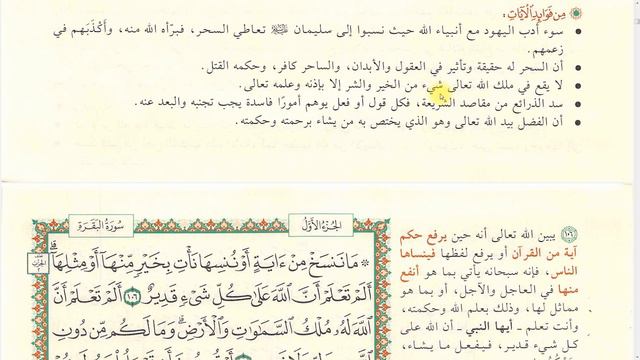 من فوائد الآيات:
• سوء أدب اليهود مع أنبياء الله حيث نسبوا إلى سليمان ﷺ تعاطي السحر، فبرّأه الله منه، وأكْذَبَهم في
زعمهم.
• أن السحر له حقيقة وتأثير في العقول والأبدان، والساحر كافر، وحكمه القتل.
• لا يقع في ملك الله تعالى شيء من الخير والشر إلا بإذنه وعلمه تعالى.
• سد الذرائع من مقاصد الشريعة، فكل قول أو فعل يوهم أمورًا فاسدة يجب تجنبه والبعد عنه.
• أن الفضل بيد الله تعالى وهو الذي يختص به من يشاء برحمته وحكمته.
الجزء الأول
سورة البقرة
مَا نَنسَخْ مِنْ ءَايَةٍ أَوْ نُنسِهَا نَأْتِ بِخَيْرٍ مِّنْهَا أَوْ مِثْلِهَا
أَلَمْ تَعْلَمْ أَنَّ ٱللَّهَ عَلَىٰ كُلِّ شَىْءٍ قَدِيرٌ ١٠٦ أَلَمْ تَعْلَمْ أَنَّ
ٱللَّهَ لَهُۥ مُلْكُ ٱلسَّمَٰوَٰتِ وَٱلْأَرْضِ وَمَا لَكُم مِّن دُونِ
١٠٦ يبين الله تعالى أنه حين يرفع حكم
آية من القرآن أو يرفع لفظها فينساها
الناس، فإنه سبحانه يأتي بما هو أنفع
منها في العاجل والآجل، أو بما هو
مماثل لها، وذلك بعلم الله وحكمته،
وأنت تعلم - أيها النبي - أن الله على
كل شيء قدير، فيفعل ما يشاء،